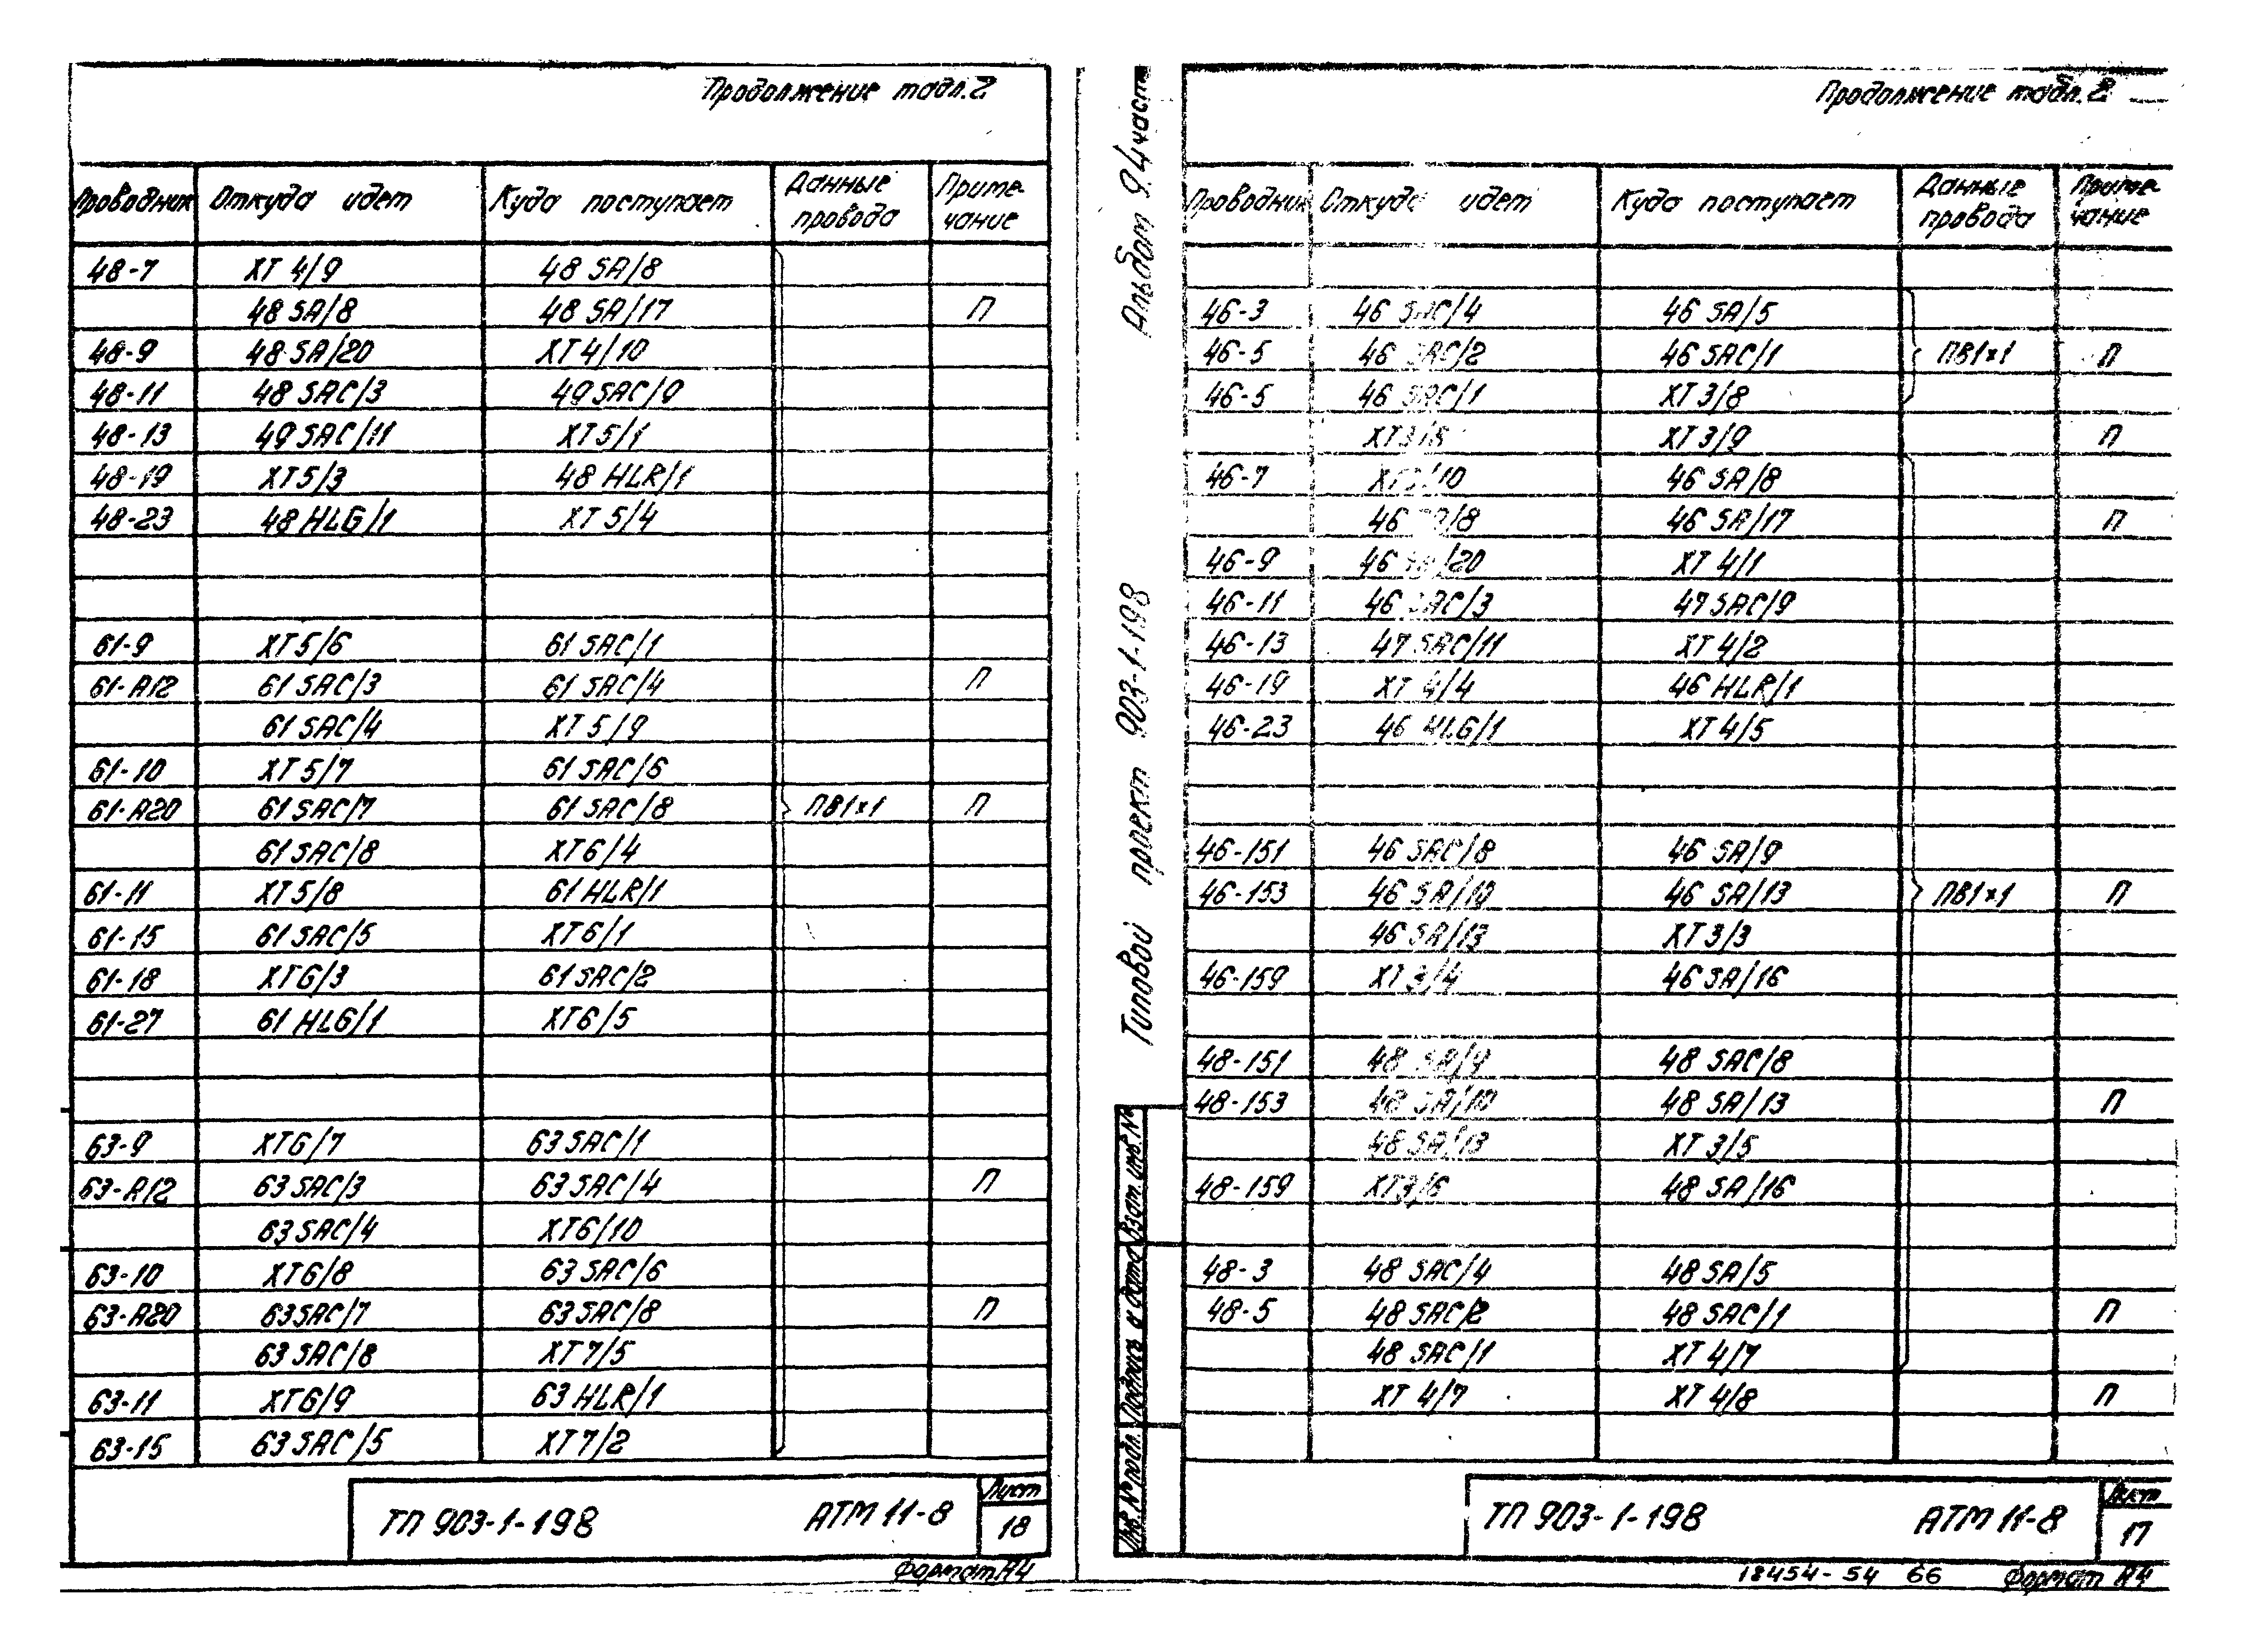 Продолжение табл.2
Проводник Откуда идет Куда поступает Данные провода Приме-чание
48-7 XT 4/9 48 SA/8
48 SA/8 48 SA/17 П
48-9 48 SA/20 XT 4/10
48-11 48 SAC/3 49 SAC/9
48-13 49 SAC/11 XT 5/1
48-19 XT 5/3 48 HLR/1
48-23 48 HLG/1 XT 5/4
61-9 XT 5/6 61 SAC/1
61-A12 61 SAC/3 61 SAC/4 П
61 SAC/4 XT 5/9
61-10 XT 5/7 61 SAC/6
61-A20 61 SAC/7 61 SAC/8 ПВ1×1 П
61 SAC/8 XT 6/4
61-11 XT 5/8 61 HLR/1
61-15 61 SAC/5 XT 6/1
61-18 XT 6/3 61 SAC/2
61-27 61 HLG/1 XT 6/5
63-9 XT 6/7 63 SAC/1
63-A12 63 SAC/3 63 SAC/4 П
63 SAC/4 XT 6/10
63-10 XT 6/8 63 SAC/6
63-A20 63 SAC/7 63 SAC/8 П
63 SAC/8 XT 7/5
63-11 XT 6/9 63 HLR/1
63-15 63 SAC/5 XT 7/2
ТП 903-1-198 АТМ 11-8 Лист 18
Формат А4
Типовой проект 903-1-198 Альбом 9.4 част
Инв.№подл. Подпись и дата Взам.инв.№
Продолжение табл.2
Проводник Откуда идет Куда поступает Данные провода Приме-чание
46-3 46 SAC/4 46 SA/5
46-5 46 SAC/2 46 SAC/1 ПВ1×1 П
46-5 46 SAC/1 XT 3/8
XT 3/8 XT 3/9 П
46-7 XT 3/10 46 SA/8
46 SA/8 46 SA/17 П
46-9 46 SA/20 XT 4/1
46-11 46 SAC/3 47 SAC/9
46-13 47 SAC/11 XT 4/2
46-19 XT 4/4 46 HLR/1
46-23 46 HLG/1 XT 4/5
46-151 46 SAC/8 46 SA/9
46-153 46 SA/10 46 SA/13 ПВ1×1 П
46 SA/13 XT 3/3
46-159 XT 3/4 46 SA/16
48-151 48 SA/9 48 SAC/8
48-153 48 SA/10 48 SA/13 П
48 SA/13 XT 3/5
48-159 XT 3/6 48 SA/16
48-3 48 SAC/4 48 SA/5
48-5 48 SAC/2 48 SAC/1 П
48 SAC/1 XT 4/7
XT 4/7 XT 4/8 П
ТП 903-1-198 АТМ 11-8 Лист 17
18454-54 66 Формат А4